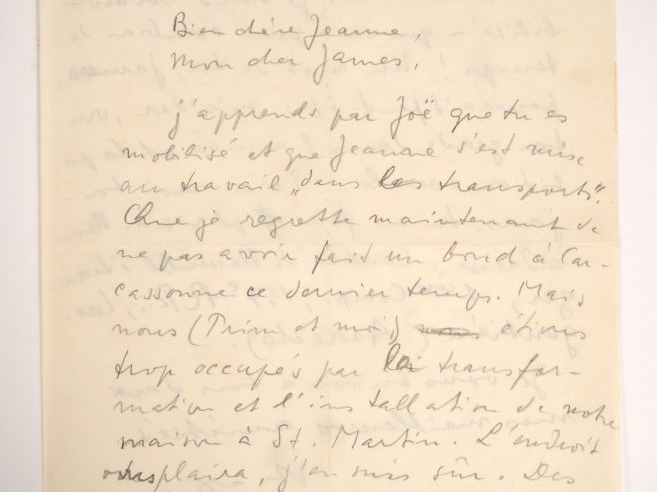 Bien chère Jeanne,
Mon cher James,
j'apprends par Joë que tu es
mobilisé et que Jeanne s'est mise
au travail „dans les transports".
Que je regrette maintenant de
ne pas avoir fait un bond à Car-
cassonne ce dernier temps. Mais
nous (Trim et moi) étions
trop occupés par la transfor-
mation et l'installation de notre
maison à St. Martin. L'endroit
vous plaira, j'en suis sûr. Des